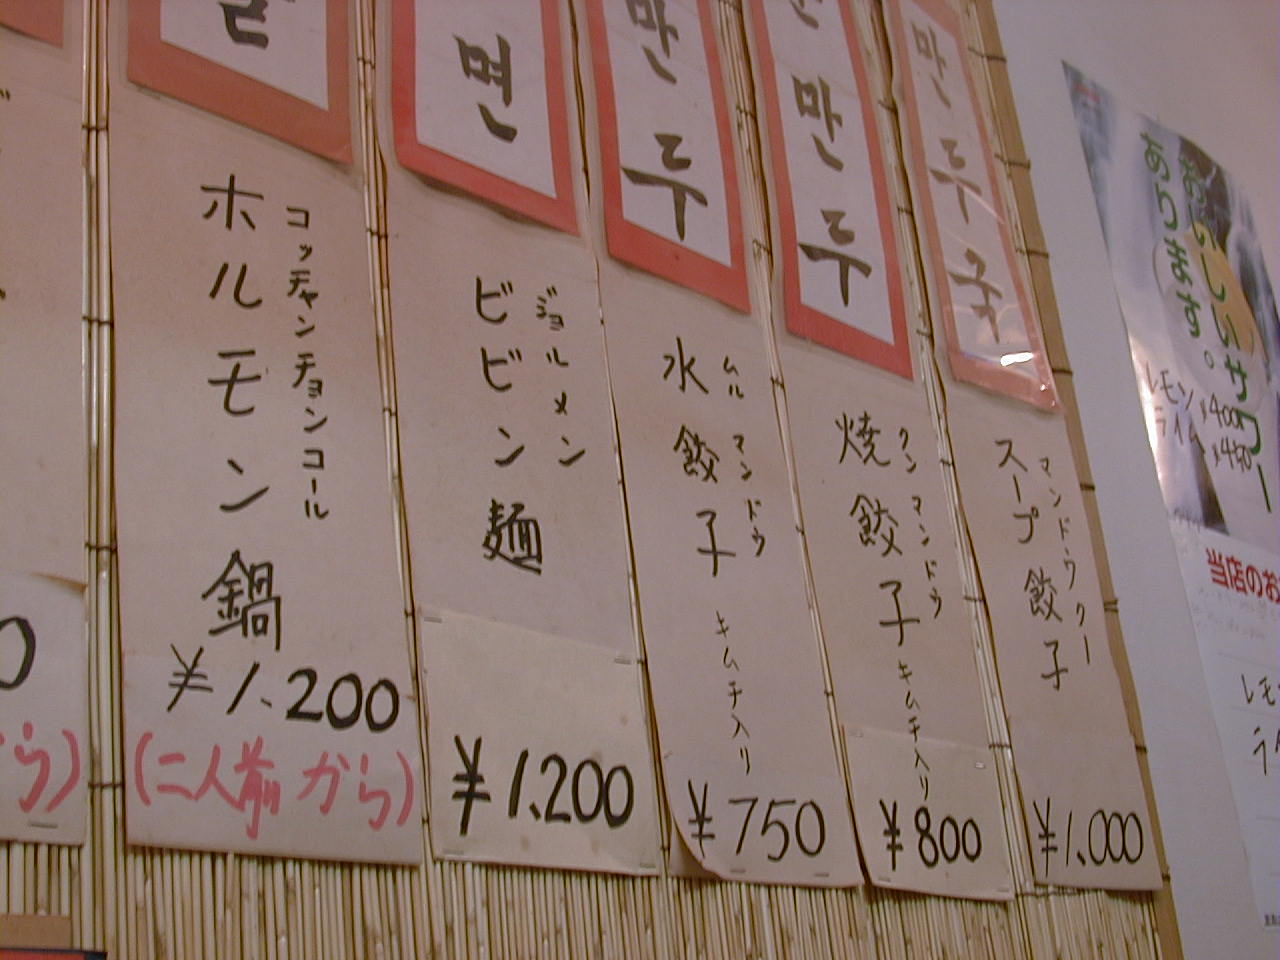 면
만
두
만
두
만
두
국
コッチャンチョンコール
ホルモン鍋
¥1.200
(二人前から)
ジョルメン
ビビン麺
¥1.200
ムルマンドゥ
水餃子
キムチ入り
¥750
クンマンドゥ
焼餃子
キムチ入り
¥800
マンドゥクー
スープ餃子
¥1.000
おいしいサワー
あります。
レモン ¥400
ライム ¥450
当店のお
レモ
ライ
0
から)